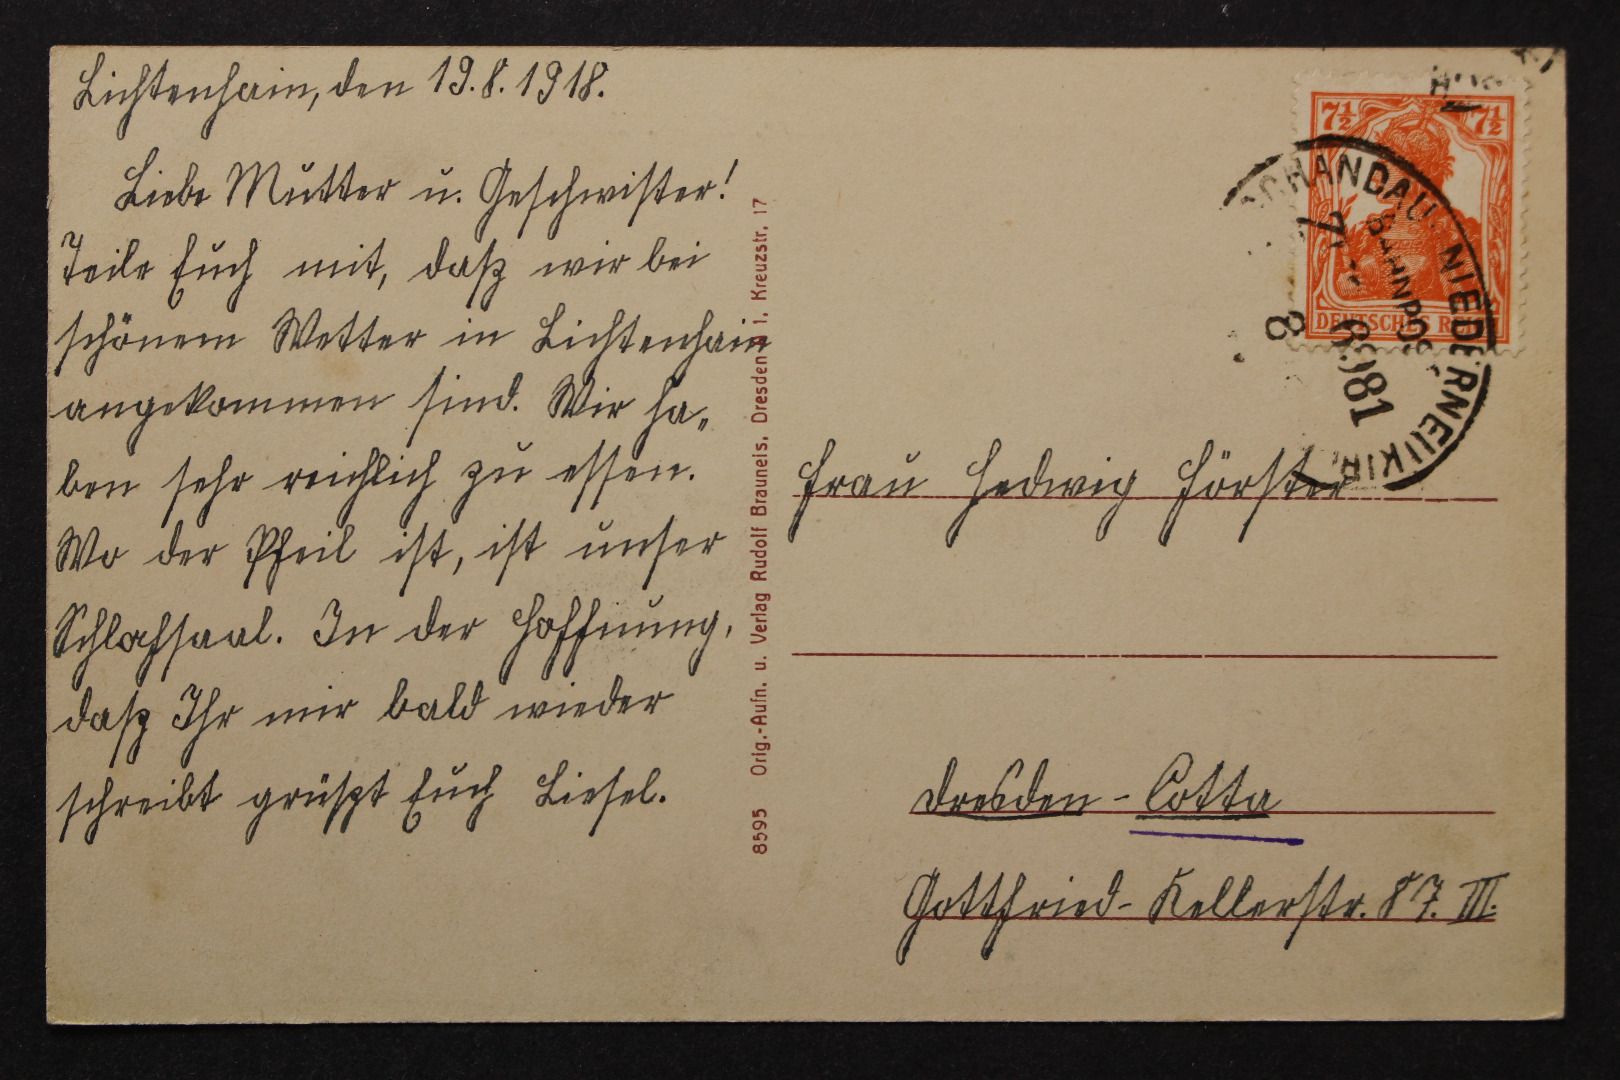 Lichtenhain, den 19.8.1918.
Liebe Mutter u. Geschwister!
Teile Euch mit, daß wir bei
schönem Wetter in Lichtenhain
angekommen sind. Wir ha„
ben sehr reichlich zu essen.
Wo der Pfeil ist, ist unser
Schlafsaal. In der Hoffnung,
daß Ihr mir bald wieder
schreibt grüßt Euch Liesel.
8595 Orig.-Aufn. u. Verlag Rudolf Brauneis, Dresden 1, Kreuzstr. 17
7½ 7½
DEUTSCHES REICH
SCHANDAU NIEDERNEUKIR
BAHNPOST
Frau Hedwig Förster
Dresden - Cotta
Gottfried-Kellerstr. 87. III.